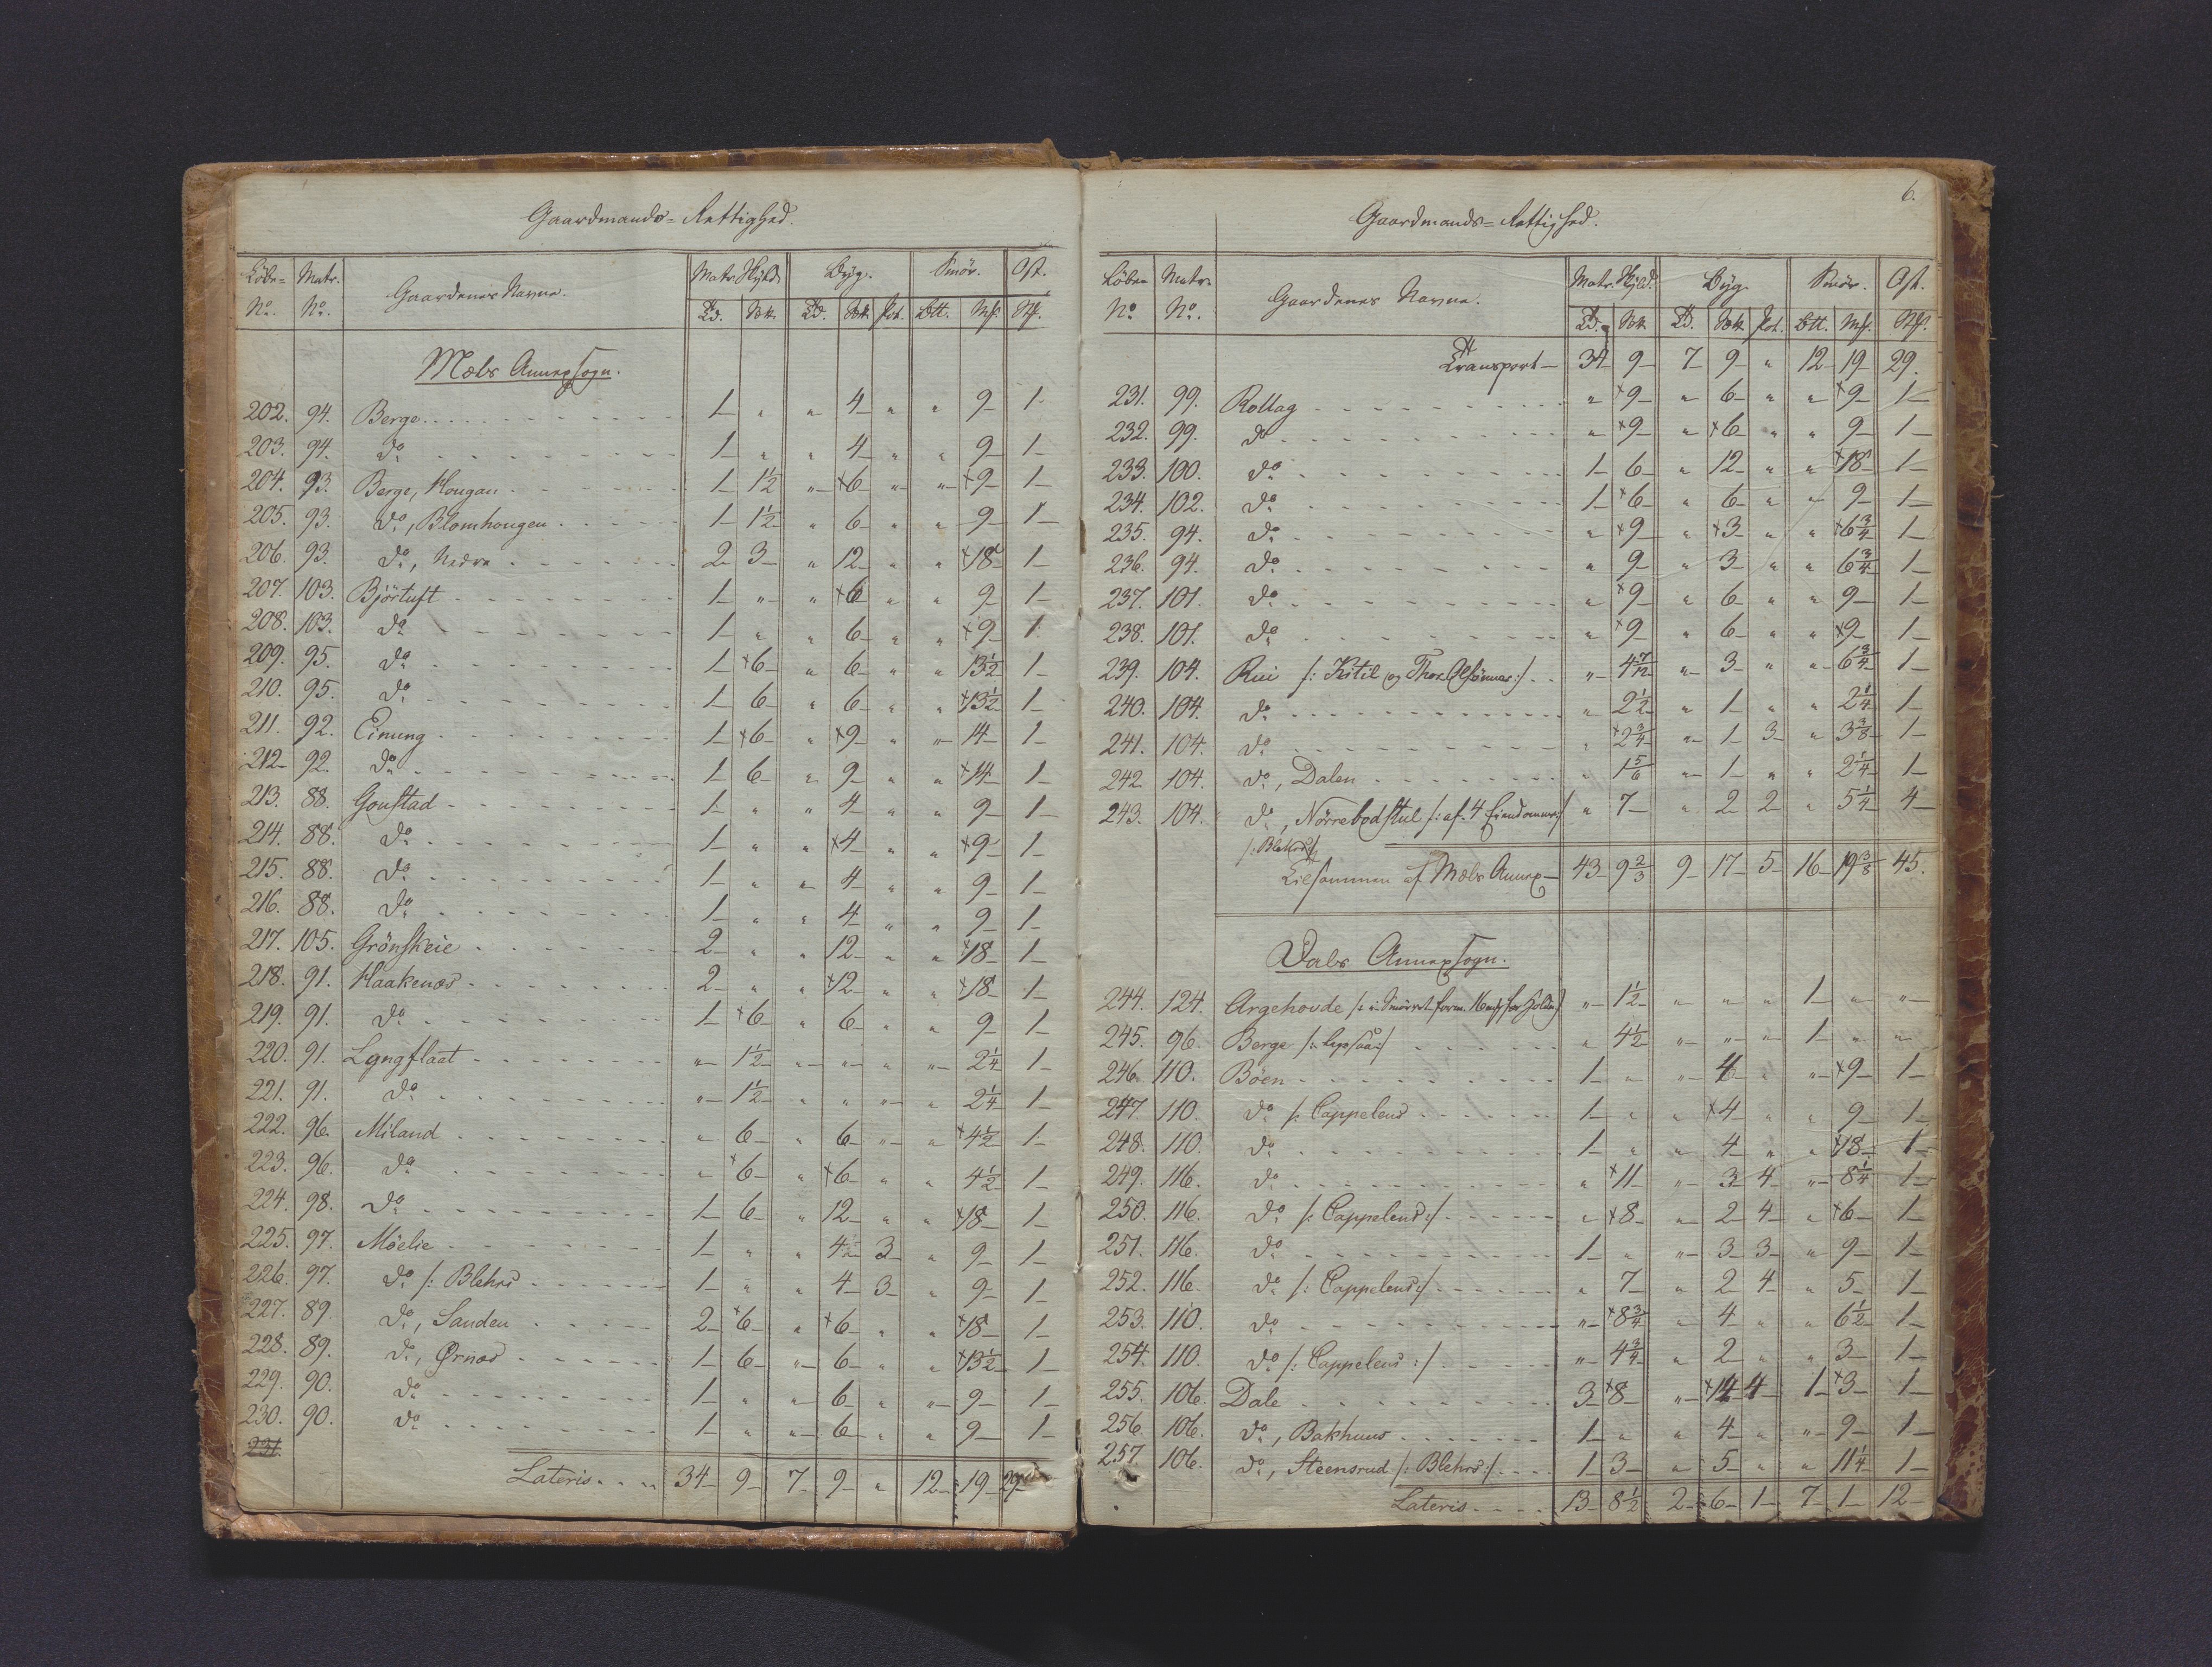 Gaardmands=Rettighed.
Löbe= Matr. Gaardenes Navne. Matr. Skyld. Byg. Smör. Ost.
No. No. Ld. Sett. Ld. Sett. Pot. Btt. Mk. Stk.
Mæls Annexsogn.
202. 94. Berge 1 " " 4 " " 9 1
203. 94. do 1 " " 4 " " 9 1
204. 93. Berge, Hougan 1 1½ " ×6 " " ×9 1
205. 93. do, Blomhougen 1 1½ " 6 " " 9 1
206. 93. do, Nedre 2 3 " 12 " " ×18 1
207. 103. Bjørtuft 1 " " ×6 " " 9 1
208. 103. do 1 " " 6 " " ×9 1
209. 95. do 1 ×6 " 6 " " 13½ 1
210. 95. do 1 6 " 6 " " ×13½ 1
211. 92. Einung 1 ×6 " ×9 " " 14 1
212 92. do 1 6 " 9 " " ×14 1
213. 88. Goustad 1 " " 4 " " 9 1
214. 88. do 1 " " ×4 " " ×9 1
215. 88. do 1 " " 4 " " 9 1
216. 88. do 1 " " 4 " " 9 1
217. 105. Grönskeie 2 " " 12 " " ×18 1
218. 91. Haakenæs 2 " " ×12 " " ×18 1
219. 91. do 1 ×6 " 6 " " 9 1
220. 91. Lyngflaat " 1½ " " " " 2¼ 1
221. 91. do " 1½ " " " " 2¼ 1
222. 96. Miland " 6 " 6 " " ×4½ 1
223. 96. do " ×6 " ×6 " " 4½ 1
224. 98. do 1 6 " 12 " " ×18 1
225. 97. Möelie 1 " " 4 3 " 9 1
226. 97. do /: Blehrs 1 " " 4 3 " 9 1
227. 89. do, Sanden 2 ×6 " ×6 " " ×18 1
228. 89. do, Ørnæs 1 6 " 6 " " ×13½ 1
229. 90. do 1 " " 6 " " 9 1
230. 90. do 1 " " 6 " " 9 1
231.
Lateris 34 9 7 9 " 12 19 29
6.
Gaardmands=Rettighed.
Löbe= Matr. Gaardenes Navne. Matr. Skyld. Byg. Smör. Ost.
No No. Ld. Sett. Ld. Sett. Pot. Btt. Mk. Stk.
Transport 34 9 7 9 " 12 19 29.
231. 99. Rollag " ×9 " 6 " " ×9 1
232. 99. do " ×9 " ×6 " " 9 1
233. 100. do 1 6 " 12 " " ×18 1
234. 102. do 1 ×6 " 6 " " 9 1
235. 94. do " ×9 " ×3 " " ×6¾ 1
236. 94. do " 9 " 3 " " 6¾ 1
237. 101. do " ×9 " 6 " " 9 1
238. 101. do " ×9 " 6 " " ×9 1
239. 104. Rui /: Kitil og Thor Olsönner :/ " 4 7/12 " 3 " " 6¾ 1
240. 104. do " 2½ " 1 " " 2¼ 1
241. 104. do " ×2¾ " 1 3 " 3⅜ 1
242. 104. do, Dalen " 1⅚ " 1 " " 2¼ 1
243. 104. do, Nörrebodstul /: af 4 Eiendomme :/ " 7 " 2 2 " 5¼ 4
/: Blehrs :/
Tilsammen af Mæls Annex 43 9⅔ 9 17 5 16 19⅜ 45.
Dals Annexsogn.
244. 124. Argehovde " 1½ " " " 1 " "
245. 96. Berge " 4½ " " " 1 " "
246. 110. Böen 1 " " 4 " " ×9 1
247. 110. do /: Cappelens 1 " " ×4 " " 9 1
248. 110. do 1 " " 4 " " ×18 1
249. 116. do " ×11 " 3 4 " 8¼ 1
250. 116. do /: Cappelens :/ " ×8 " 2 4 " ×6 1
251. 116. do 1 " " 3 3 " 9 1
252. 116. do /: Cappelens :/ " 7 " 2 4 " 5 1
253. 110. do " ×8¾ " 4 " " 6½ 1
254. 110. do /: Cappelens :/ " 4¾ " 2 " " 3 1
255. 106. Dale 3 ×8 " ×14 4 1 ×3 1
256. 106. do, Bakhuus 1 " " 4 " " 9 1
257. 106. do, Steensrud /: Blehrs :/ 1 3 " 5 " " 11¼ 1
Lateris 13 8½ 2 6 1 7 1 12